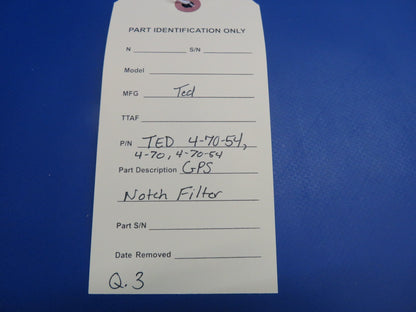 PART IDENTIFICATION ONLY
N S/N
Model
MFG Ted
TTAF
P/N TED 4-70-54,
4-70, 4-70-54
Part Description GPS
Notch Filter
Part S/N
Date Removed
Q.3